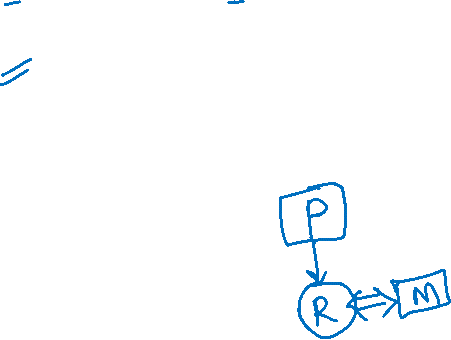 P
R M